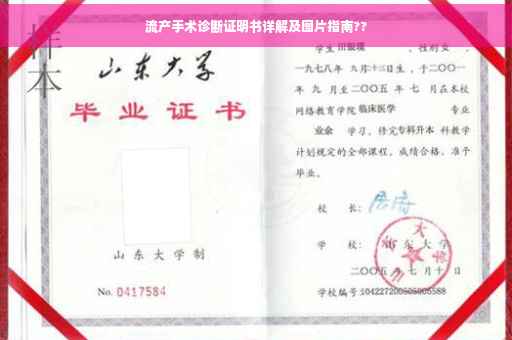 流产手术诊断证明书详解及图片指南??
样本
山东大学
毕业证书
山东大学制
No. 0417584
学生 田银環 ，性别女，
一九七八年 九月十三日生，于二〇〇一
年 九 月至二〇〇五 年 七 月在本校
网络教育学院临床医学 专业
业余 学习，修完专科升本 科教学
计划规定的全部课程，成绩合格，准予
毕业。
校 长：
学 校： 山东大学
二〇〇五 年 七 月 十 日
学校编号:104227200505005588